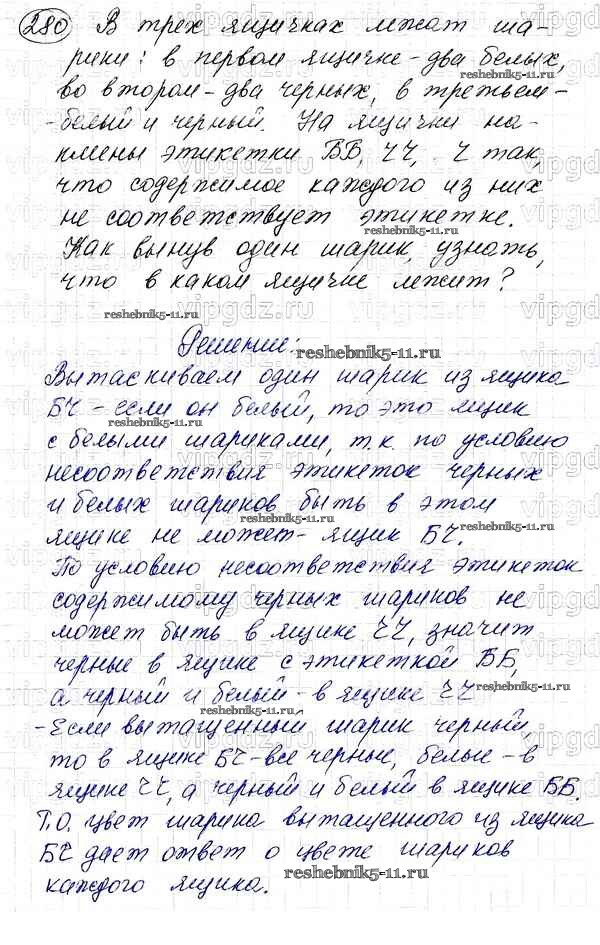 280 В трех ящичках лежат ша-
рики: в первом ящичке - два белых,
во втором - два черных, в третьем -
- белый и черный. На ящички на-
клеены этикетки ББ, ЧЧ, Ч так,
что содержимое каждого из них
не соответствует этикетке.
Как вынув один шарик, узнать,
что в каком ящичке лежит?
Решение:
Вытаскиваем один шарик из ящика
БЧ - если он белый, то это ящик
с белыми шариками, т.к. по условию
несоответствия этикеток черных
и белых шариков быть в этом
ящике не может - ящик БЧ.
По условию несоответствия этикеток
содержимому черных шариков не
может быть в ящике ЧЧ, значит
черные в ящике с этикеткой ББ,
а черный и белый - в ящике ЧЧ
- Если вытащенный шарик черный,
то в ящике БЧ - все черные, белые - в
ящике ЧЧ, а черный и белый в ящике ББ.
Т.О. цвет шарика вытащенного из ящика
БЧ дает ответ о цвете шариков
каждого ящика.
reshebnik5-11.ru
vipgdz.ru